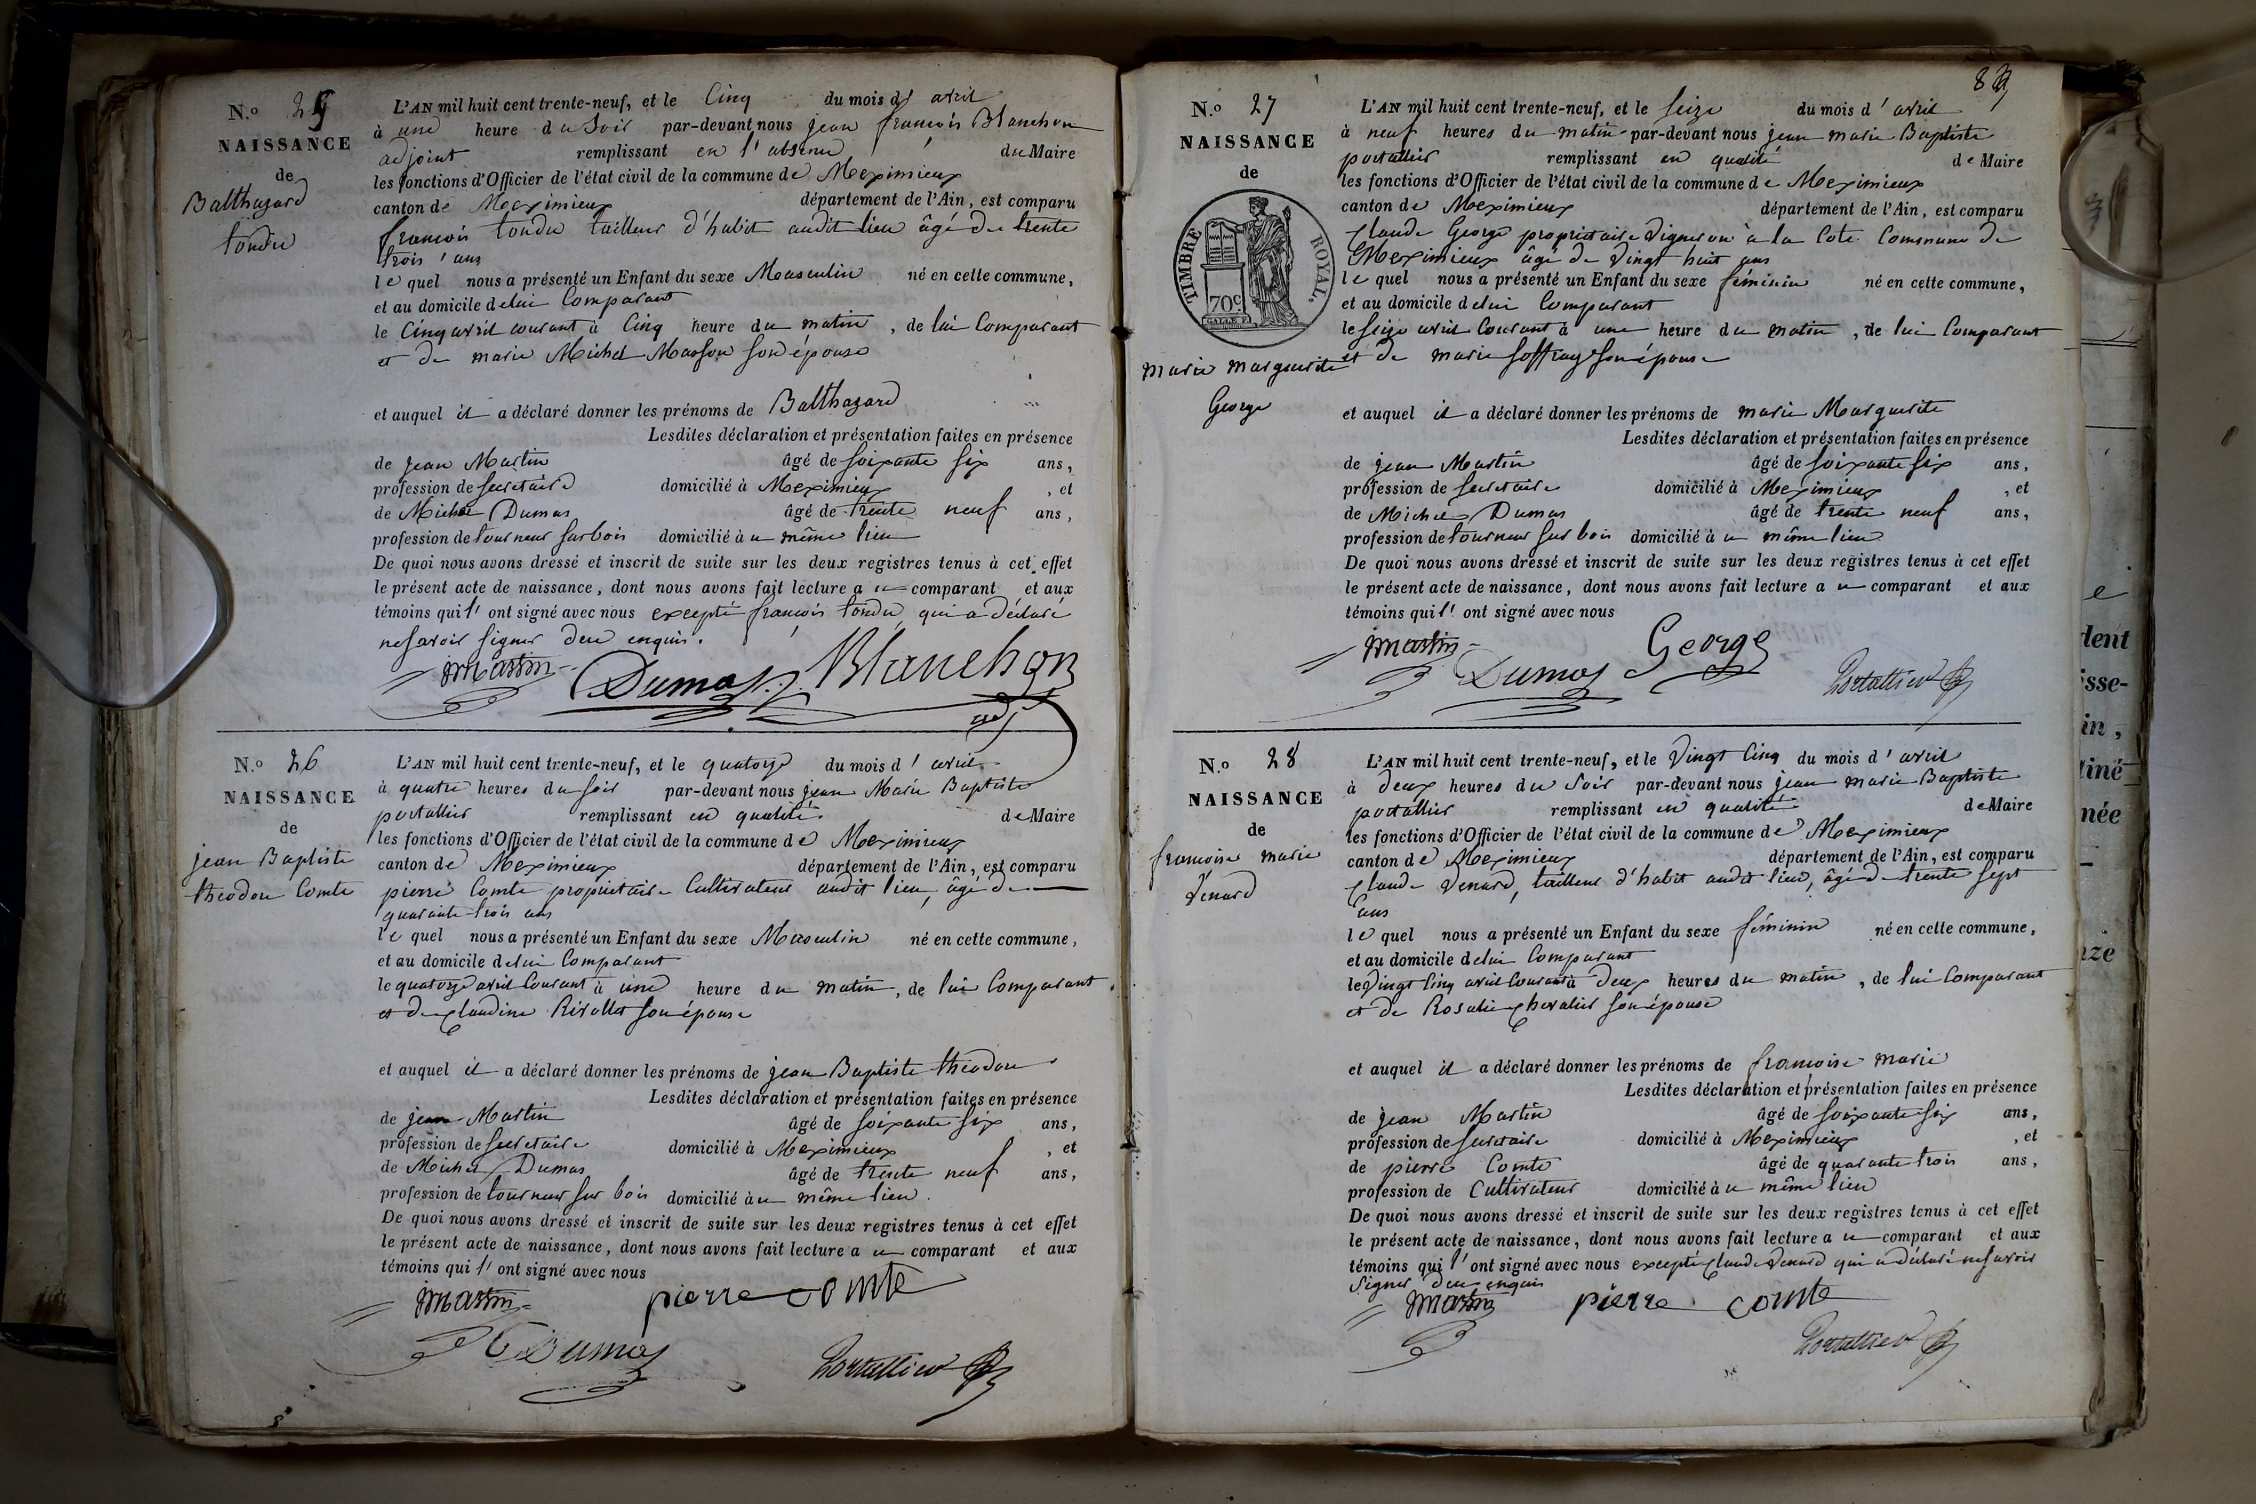 N.o 25
NAISSANCE
de
Balthazard
tondu
L'AN mil huit cent trente-neuf, et le Cinq du mois d' avril
à une heure du Soir par-devant nous jean françois Blanchon
adjoint remplissant en l'absence du Maire
les fonctions d'Officier de l'état civil de la commune de Meximieux
canton de Meximieux département de l'Ain, est comparu
françois tondu tailleur d'habit audit lieu âgé de trente
trois ans
le quel nous a présenté un Enfant du sexe Masculin né en cette commune,
et au domicile de lui Comparant
le Cinq avril courant à Cinq heure du matin, de lui Comparant
et de marie Michel Masson son épouse
et auquel il a déclaré donner les prénoms de Balthazard
Lesdites déclaration et présentation faites en présence
de jean Martin âgé de soixante six ans,
profession de secretaire domicilié à Meximieux, et
de Michel Dumas âgé de trente neuf ans,
profession de tourneur sur bois domicilié à u même lieu
De quoi nous avons dressé et inscrit de suite sur les deux registres tenus à cet effet
le présent acte de naissance, dont nous avons fait lecture a u comparant et aux
témoins qui l' ont signé avec nous excepté françois tondu, qui a déclaré
ne savoir signer de ce enquis.
Martin Dumas Blanchon
adj
N.o 26
NAISSANCE
de
jean Baptiste
théodore Comte
L'AN mil huit cent trente-neuf, et le quatorze du mois d' avril
à quatre heures du soir par-devant nous jean Marie Baptiste
portallier remplissant en qualité de Maire
les fonctions d'Officier de l'état civil de la commune de Meximieux
canton de Meximieux département de l'Ain, est comparu
pierre Comte propriétaire Cultivateur audit lieu, âgé de
quarante trois ans
le quel nous a présenté un Enfant du sexe Masculin né en cette commune,
et au domicile de lui Comparant
le quatorze avril Courant à une heure du matin, de lui Comparant
et de Claudine Rivollet son épouse
et auquel il a déclaré donner les prénoms de jean Baptiste théodore
Lesdites déclaration et présentation faites en présence
de jean Martin âgé de soixante six ans,
profession de secretaire domicilié à Meximieux, et
de Michel Dumas âgé de trente neuf ans,
profession de tourneur sur bois domicilié à u même lieu.
De quoi nous avons dressé et inscrit de suite sur les deux registres tenus à cet effet
le présent acte de naissance, dont nous avons fait lecture a u comparant et aux
témoins qui l' ont signé avec nous
Martin pierre comte
Dumas Portallier
N.o 27
NAISSANCE
de
TIMBRE ROYAL.
70c
marie marguerite
George
L'AN mil huit cent trente-neuf, et le seize du mois d' avril
à neuf heures du matin par-devant nous jean marie Baptiste
portallier remplissant en qualité de Maire
les fonctions d'Officier de l'état civil de la commune de Meximieux
canton de Meximieux département de l'Ain, est comparu
Claude George propriétaire Vigneron à la Cote Commune de
Meximieux âgé de Vingt huit ans
le quel nous a présenté un Enfant du sexe féminin né en cette commune,
et au domicile de lui Comparant
le seize avril Courant à une heure du matin, de lui Comparant
et de marie soffray son épouse
et auquel il a déclaré donner les prénoms de marie Marguerite
Lesdites déclaration et présentation faites en présence
de jean Martin âgé de soixante six ans,
profession de secretaire domicilié à Meximieux, et
de Michel Dumas âgé de trente neuf ans,
profession de tourneur sur bois domicilié à u même lieu
De quoi nous avons dressé et inscrit de suite sur les deux registres tenus à cet effet
le présent acte de naissance, dont nous avons fait lecture a u comparant et aux
témoins qui l' ont signé avec nous
Martin Dumas George Portallier
N.o 28
NAISSANCE
de
françoise marie
Venard
L'AN mil huit cent trente-neuf, et le Vingt Cinq du mois d' avril
à deux heures du Soir par-devant nous jean marie Baptiste
portallier remplissant en qualité de Maire
les fonctions d'Officier de l'état civil de la commune de Meximieux
canton de Meximieux département de l'Ain, est comparu
Claude Venard, tailleur d'habit audit lieu, âgé de trente sept
ans
le quel nous a présenté un Enfant du sexe féminin né en cette commune,
et au domicile de lui Comparant
le Vingt Cinq avril Courant à deux heures du matin, de lui Comparant
et de Rosalie Chevalier son épouse
et auquel il a déclaré donner les prénoms de françoise marie
Lesdites déclaration et présentation faites en présence
de jean Martin âgé de soixante six ans,
profession de secretaire domicilié à Meximieux, et
de pierre Comte âgé de quarante trois ans,
profession de Cultivateur domicilié à u même lieu
De quoi nous avons dressé et inscrit de suite sur les deux registres tenus à cet effet
le présent acte de naissance, dont nous avons fait lecture a u comparant et aux
témoins qui l' ont signé avec nous excepté Claude Venard qui a déclaré ne savoir
signer de ce enquis
Martin pierre comte
Portallier